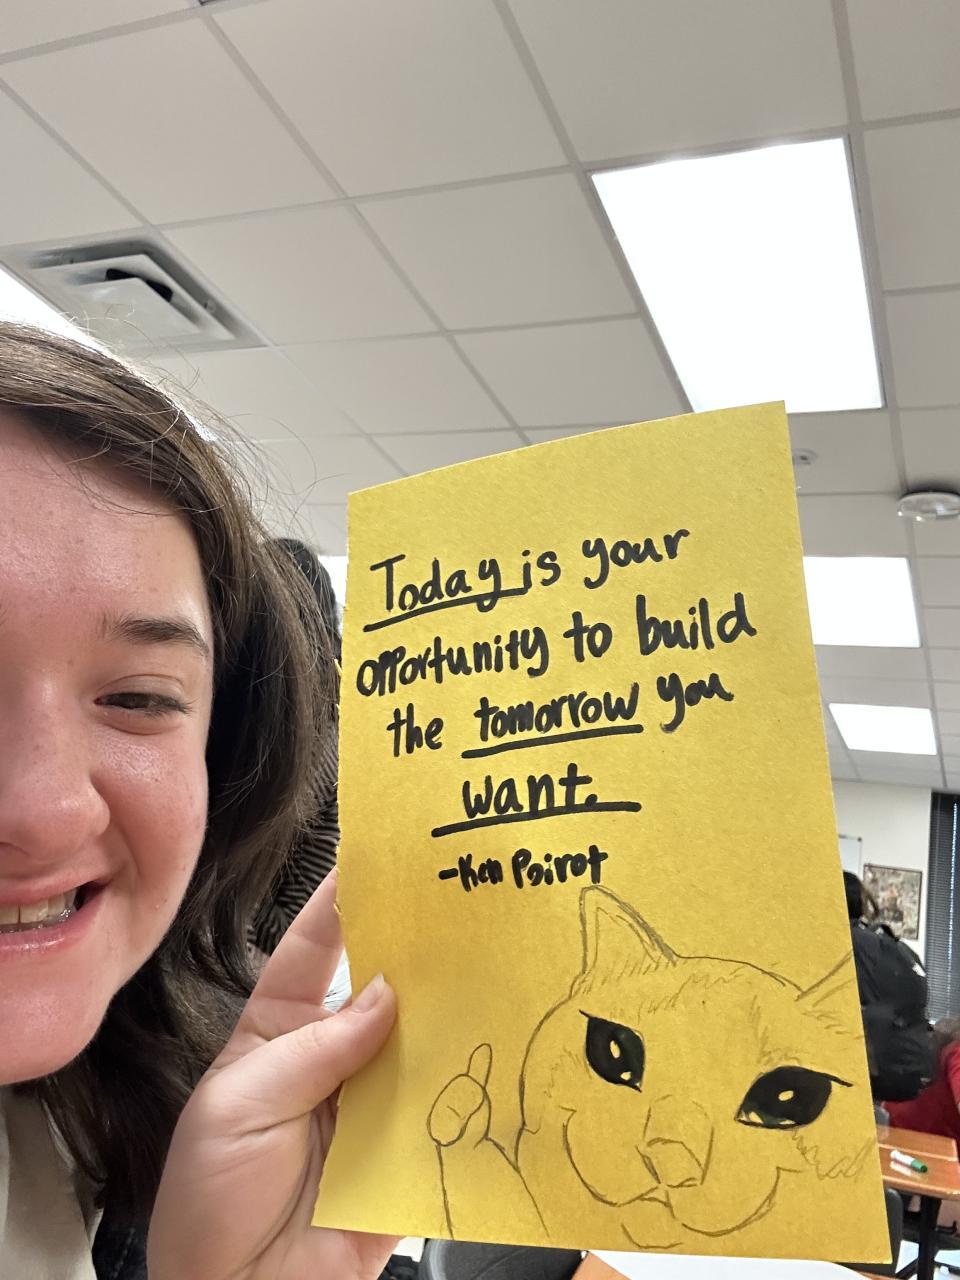 Today is your
opportunity to build
the tomorrow you
want.
-Ken Poirot